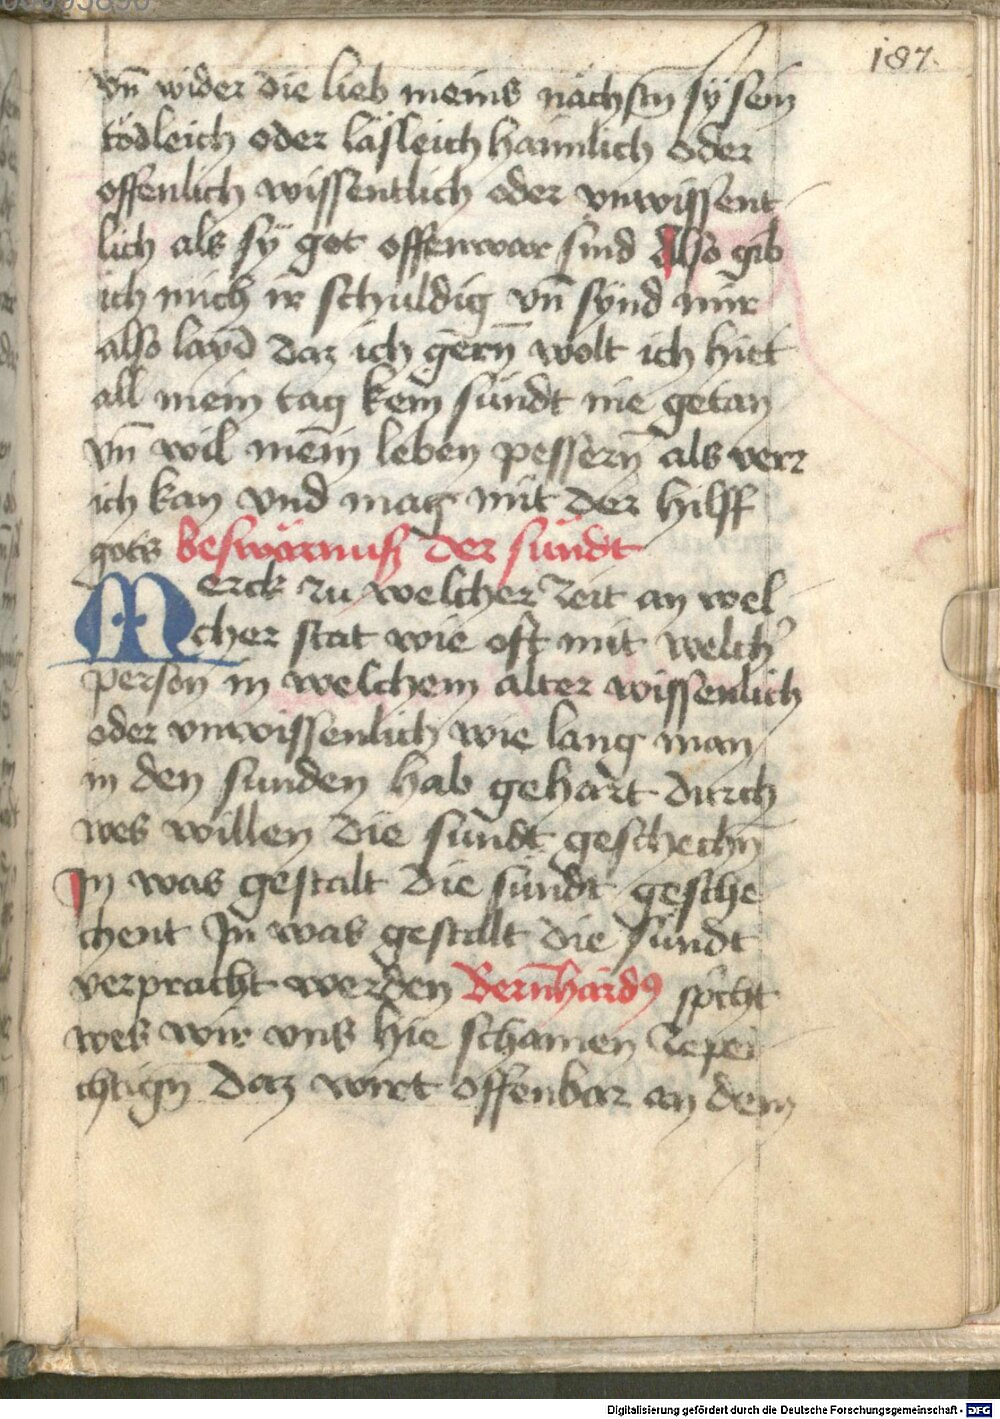 187.
vn̄ wider die lieb meins nächstn̄ sÿ sein
tödleich oder läsleich haimlich oder
offenlich wissentlich oder vnwissent
lich als sÿ got offenwar sind Also gib
ich mich ir schuldig vn̄ synd mir
also layd daz ich gern̄ wolt ich hiet
all mein tag kein sündt nie getan
vn̄ wil mein leben pessern̄ als verr
ich kan vnd mag mit der hilff
gots beswärnuß der sündt
Merck zu welcher zeit an wel
cher stat wie oft mit welch'
person in welchem alter wissenlich
oder vnwissenlich wie lang man
in den sunden hab gehart durch
wes willen die sundt geschechn̄
In was gestalt die sündt gesche
chent In was gestalt die sündt
verpracht werden Bernhardꝰ spricht
wes wir vns hie schamen zepei
chtign̄ daz wirt offenbar an dem
Digitalisierung gefördert durch die Deutsche Forschungsgemeinschaft - DFG